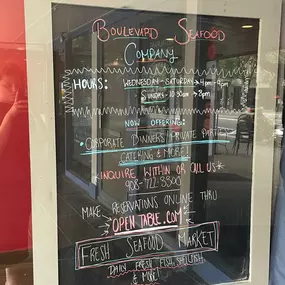 Boulevard Seafood
Company
Hours: Wednesday - Saturday 4pm - 9pm
Sunday: 10:30am → 2pm
Now Offering:
• Corporate Dinners, Private Parties
Catering & More!
*Inquire within or call us*
908-722-3300
Make reservations online thru
Open Table.com
Fresh Seafood Market
Daily Fresh Fish, Shellfish
& More!